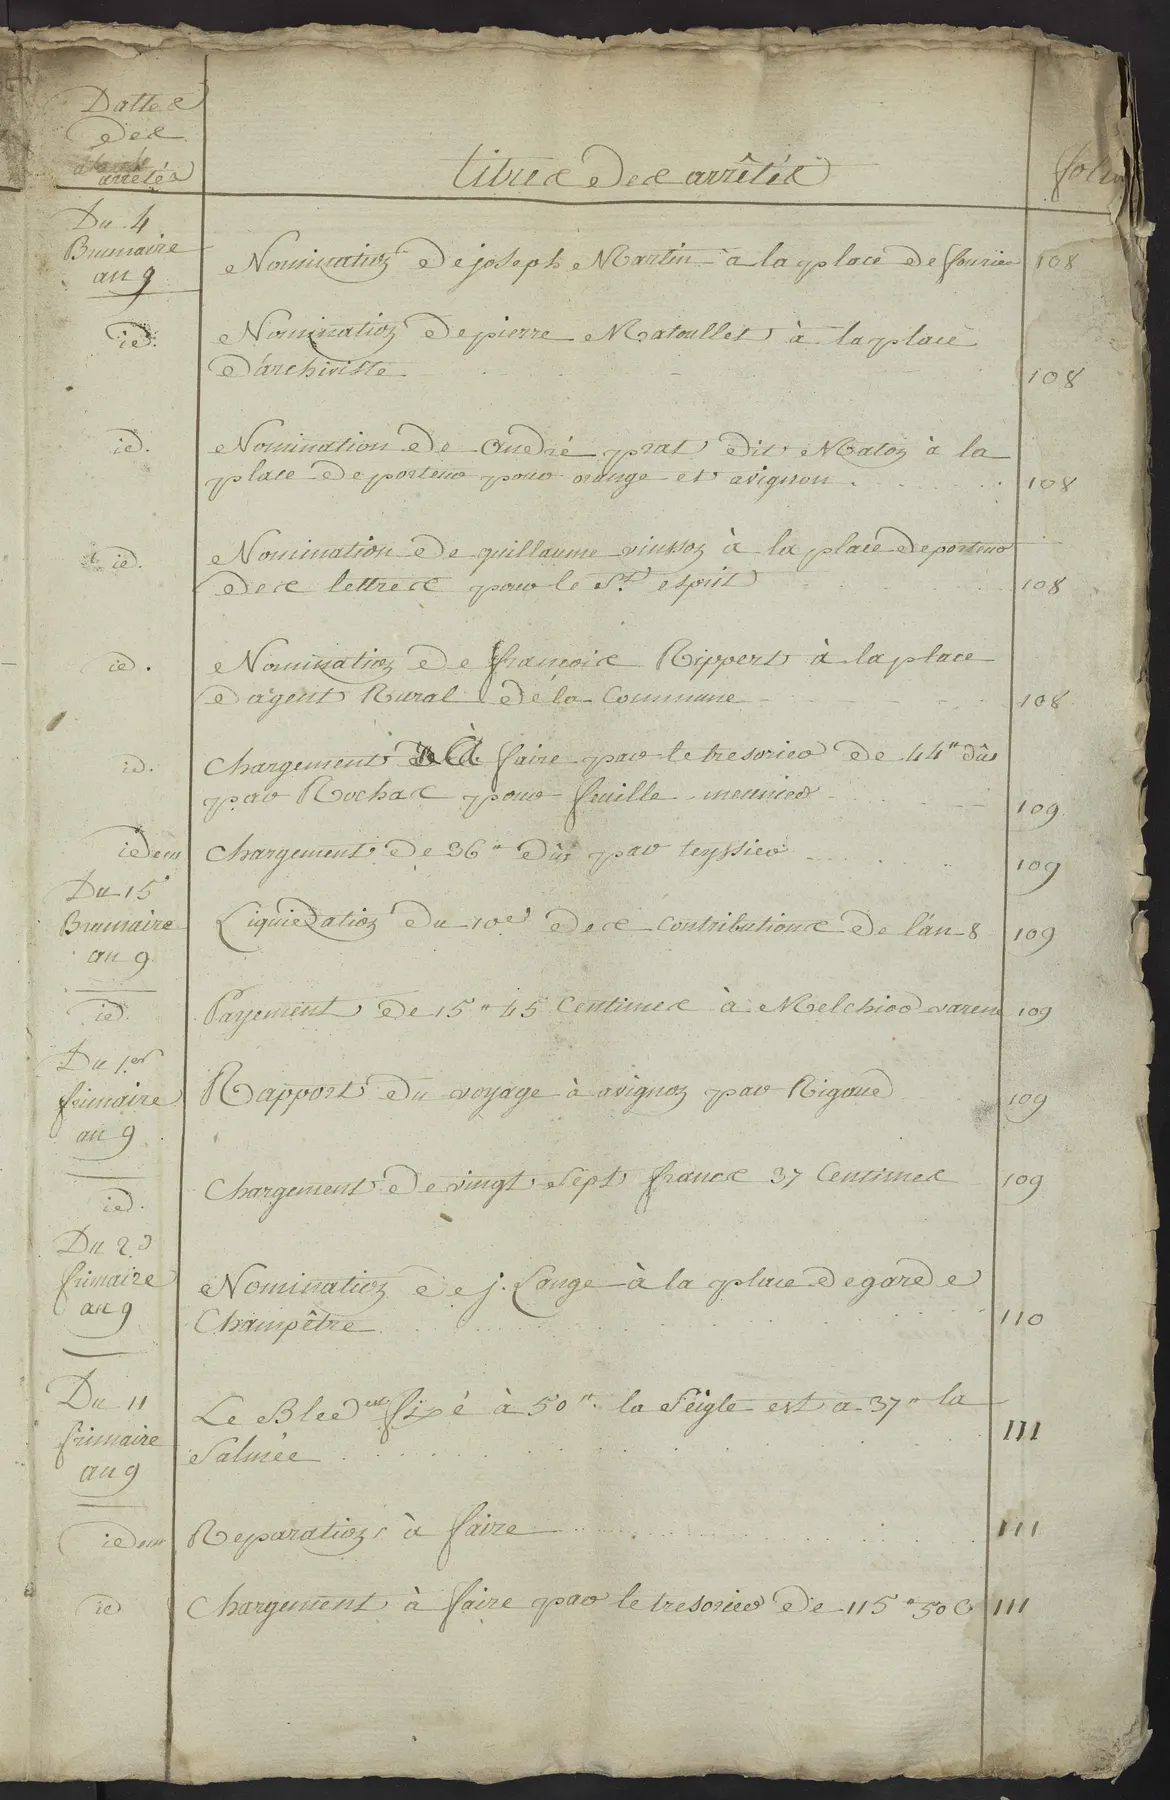 Dattes
des
arrêtés
titres des arrêtés
folio
Du 4
Brumaire
an 9
Nomination de joseph Martin à la place de fourier 108
id.
Nomination de pierre Matoullet à la place
d'archiviste 108
id.
Nomination de André prat dit Maton à la
place de porteur pour orange et avignon 108
id.
Nomination de guillaume vinsson à la place de porteur
des lettres pour le St. esprit 108
id.
Nomination de françois Rippert à la place
d'agent Rural de la Commune 108
id.
Chargement à faire par le tresorier de 44" dûs
par Rochas pour feuille meurier 109
idem
Chargement de 36" dûs par teyssier 109
Du 15
Brumaire
an 9
Liquidation du 10e des contributions de l'an 8 109
id.
Payement de 15" 45 Centimes à Melchior varene 109
Du 1er
frimaire
an 9
Rapport du voyage à avignon par Rigaud 109
id.
Chargement de vingt sept francs 37 Centimes 109
Du 2d
frimaire
an 9
Nomination de j. Lauge à la place de garde
Champêtre 110
Du 11
frimaire
an 9
Le Bled est fixé à 50". la Seigle est a 37" la
Salmée 111
idem
Reparations à faire 111
id
Chargement à faire par le tresorier de 115" 50 C 111